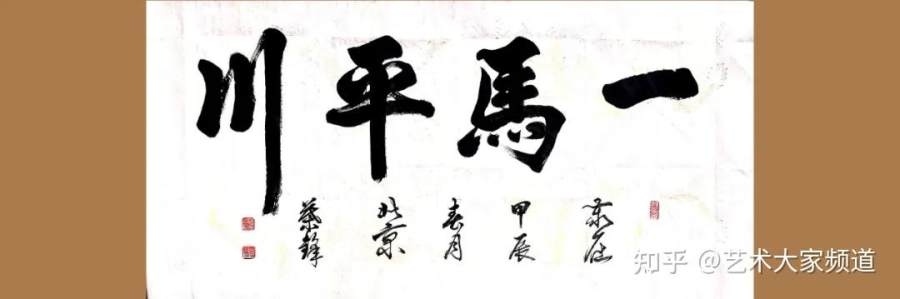 一馬平川
甲辰
春月
北京
知乎 @艺术大家频道